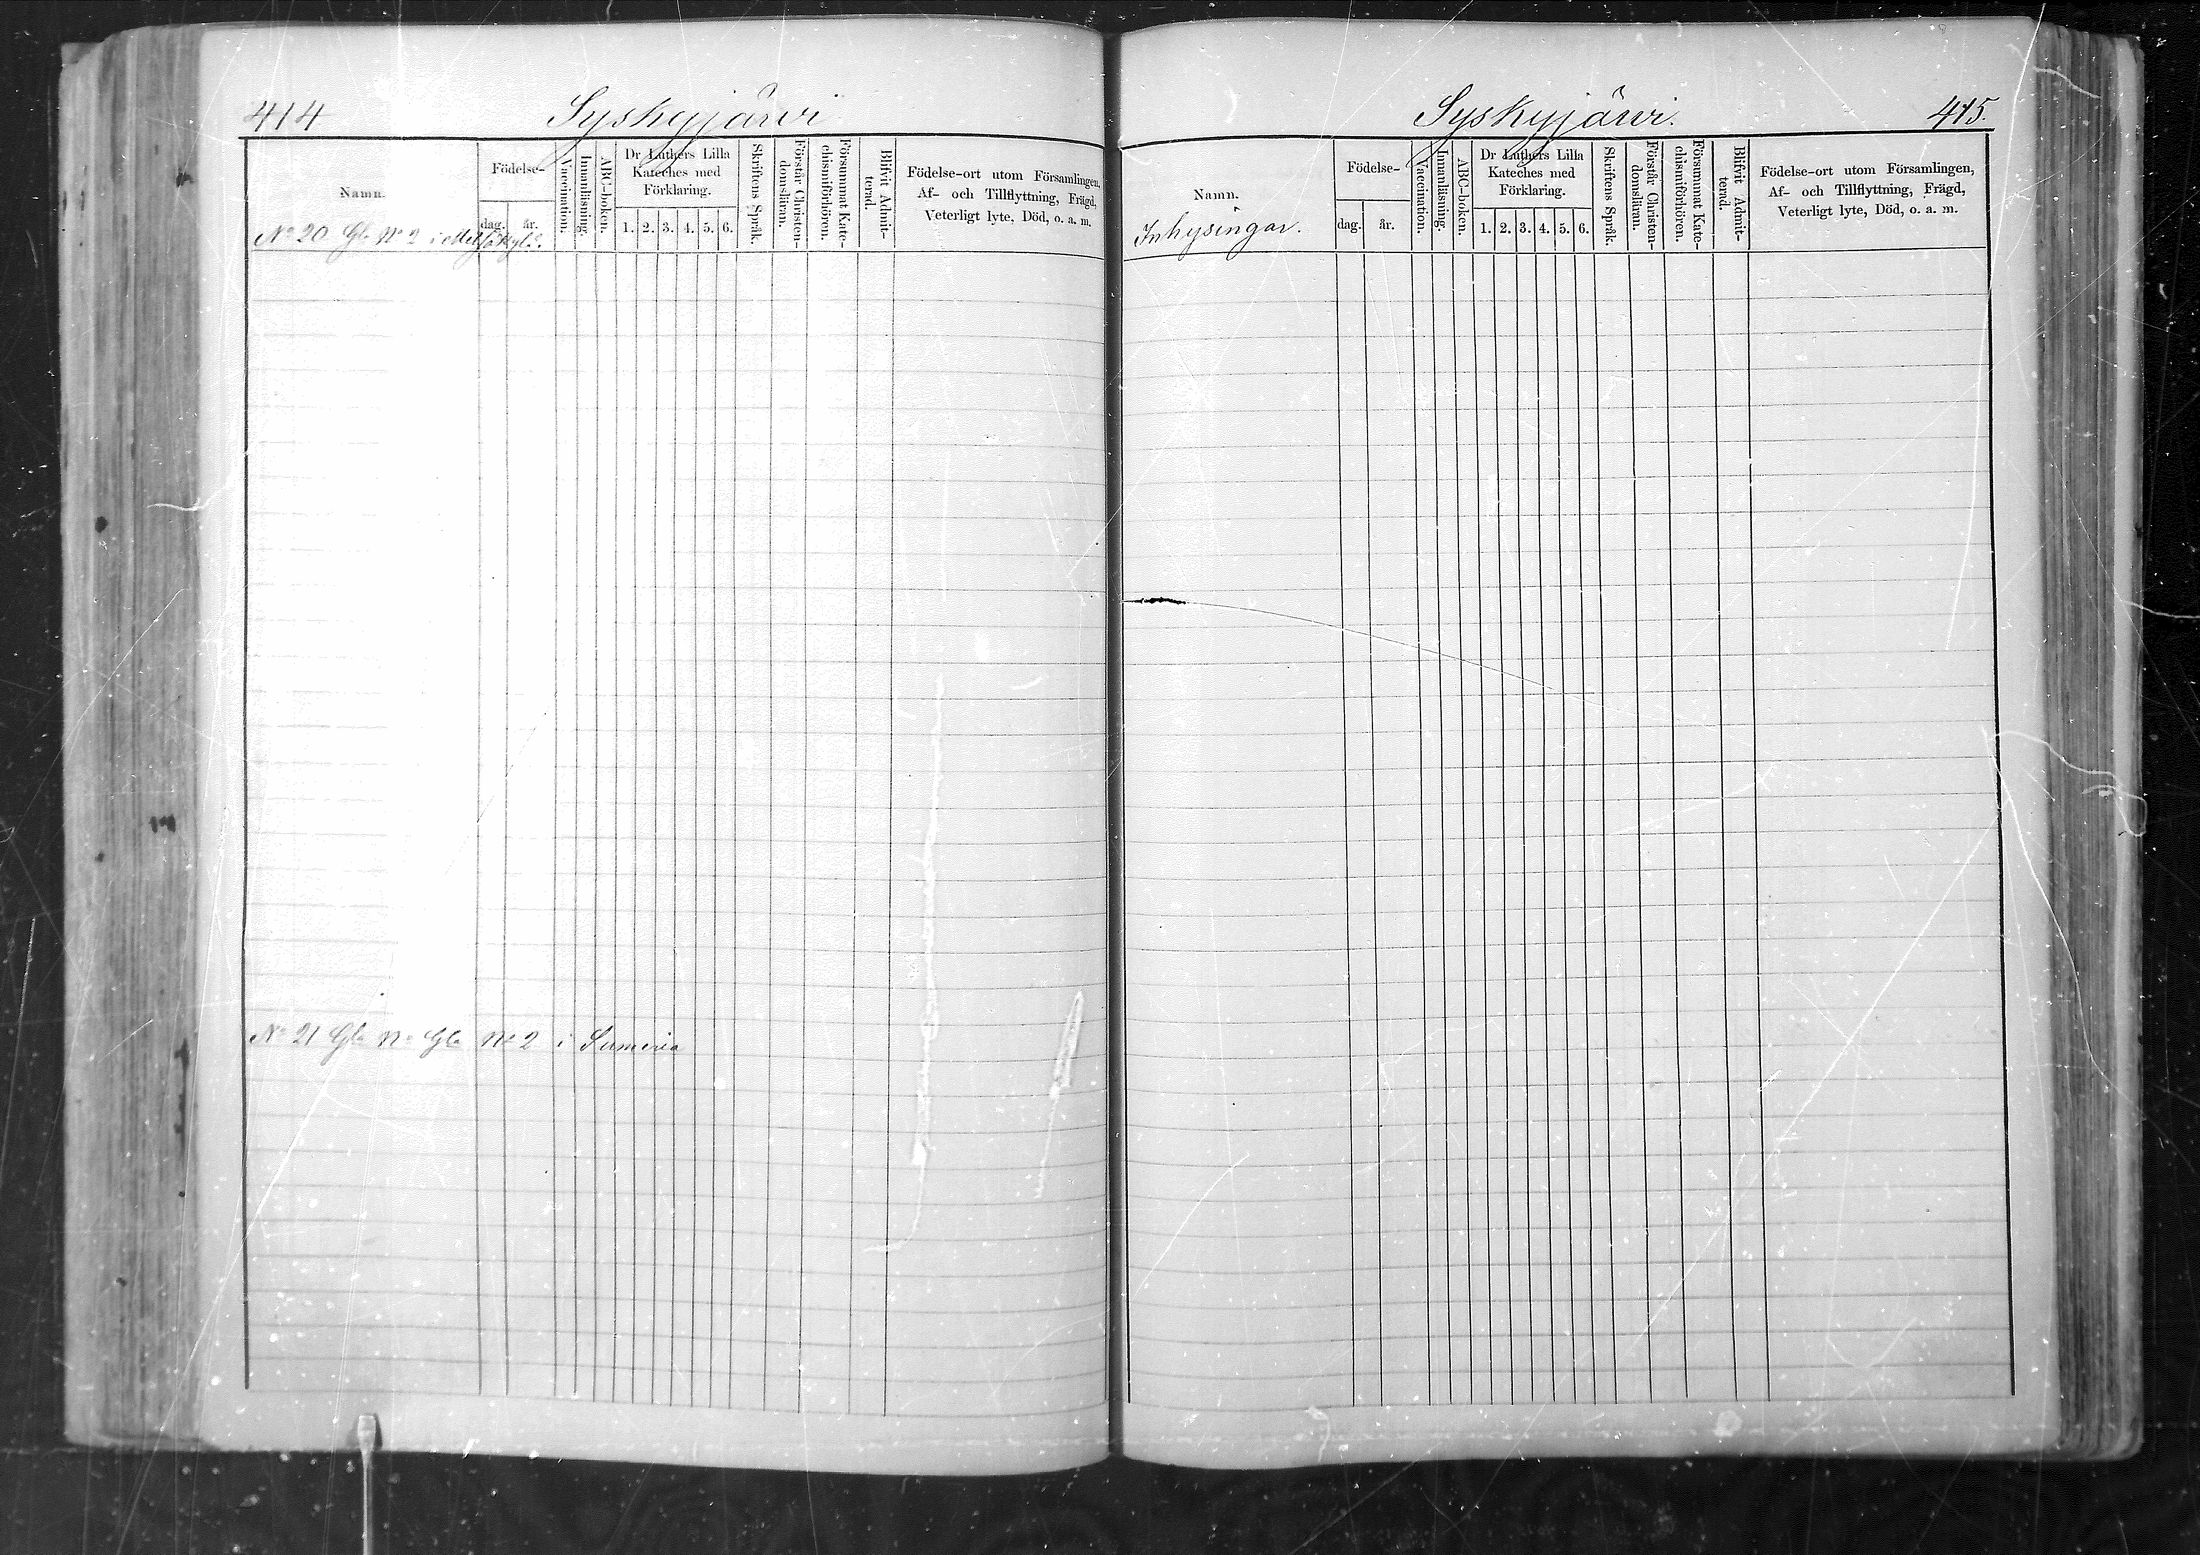 414
Syskyjärvi
Namn.
Födelse-
dag.
år.
Vaccination.
Innanläsning.
ABC-boken.
Dr Luthers Lilla
Kateches med
Förklaring.
1. 2. 3. 4. 5. 6.
Skriftens Språk.
Förstår Christen-
domsläran.
Försummat Kate-
chismiförhören.
Blifvit Admit-
terad.
Födelse-ort utom Församlingen,
Af- och Tillflyttning, Frägd,
Veterligt lyte, Död, o. a. m.
No 20 Gla No 2 i
No 21 Gla No Gla No 2 i Sumeria
Syskyjärvi.
415.
Namn.
Inhysingar.
Födelse-
dag.
år.
Vaccination.
Innanläsning.
ABC-boken.
Dr Luthers Lilla
Kateches med
Förklaring.
1. 2. 3. 4. 5. 6.
Skriftens Språk.
Förstår Christen-
domsläran.
Försummat Kate-
chismiförhören.
Blifvit Admit-
terad.
Födelse-ort utom Församlingen,
Af- och Tillflyttning, Frägd,
Veterligt lyte, Död, o. a. m.